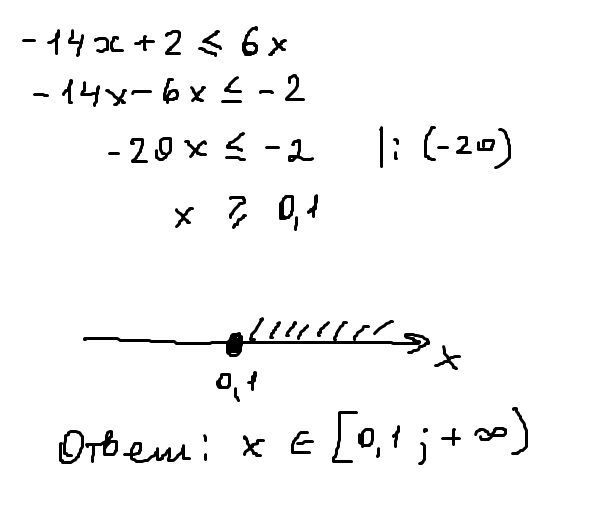 -14x + 2 ⩽ 6x
-14x - 6x ≤ -2
-20x ≤ -2 |: (-20)
x ⩾ 0,1
x
0,1
Ответ: x ∈ [0,1; +∞)